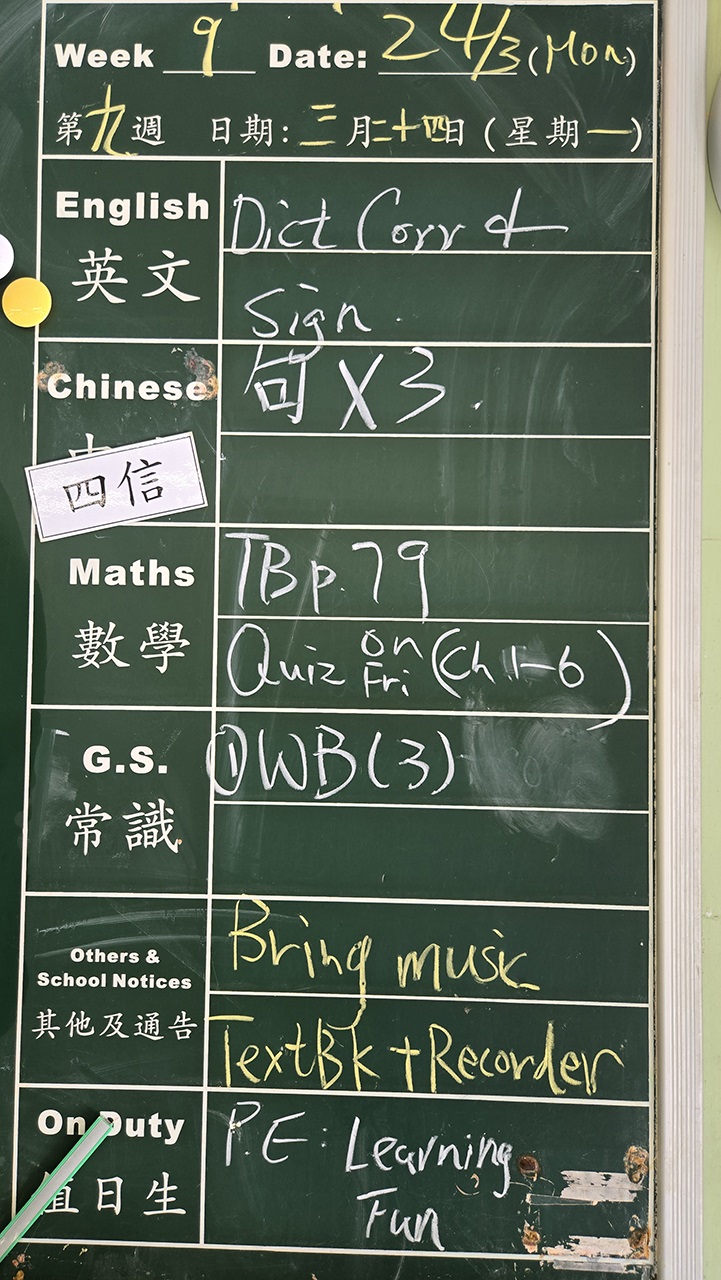 Week 9 Date: 24/3 (Mon)
第九週 日期: 三月二十四日 (星期一)
English
英文
Dict Corr &
Sign.
Chinese
句 X 3.
四信
Maths
數學
TB p.79
Quiz on Fri (Ch 1-6)
G.S.
常識
① WB (3)
Others &
School Notices
其他及通告
Bring music
TextBk + Recorder
On Duty
值日生
P.E: Learning
Fun